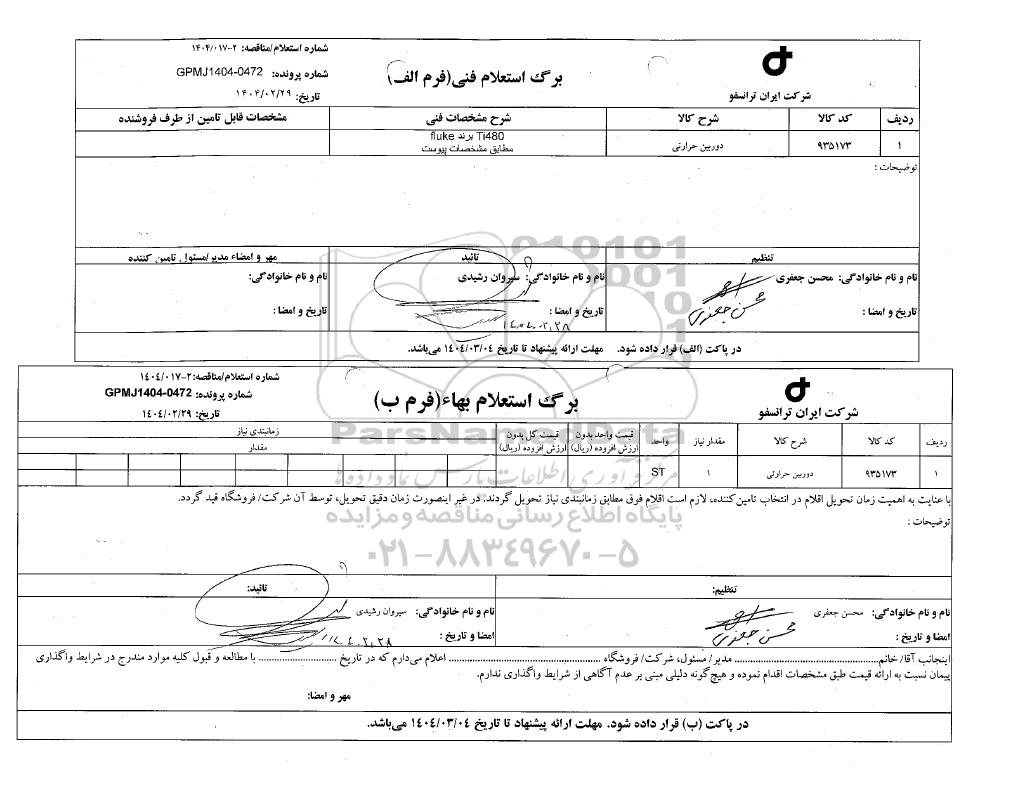 شرکت ایران ترانسفو
برگ استعلام فنی(فرم الف)
شماره استعلام/مناقصه: ۲-۱۴۰۴/۰۱۷
شماره پرونده: GPMJ1404-0472
تاریخ: ۱۴۰۴/۰۲/۲۹
ردیف کد کالا شرح کالا شرح مشخصات فنی مشخصات قابل تامین از طرف فروشنده
۱ ۹۳۵۱۷۳ دوربین حرارتی Ti480 برند fluke
مطابق مشخصات پیوست
توضیحات :
تنظیم تائید مهر و امضاء مدیر/مسئول تامین کننده
نام و نام خانوادگی: محسن جعفری نام و نام خانوادگی: سیروان رشیدی نام و نام خانوادگی:
تاریخ و امضا : محسن جعفری تاریخ و امضا : ۱۴۰۴.۰۲.۲۸ تاریخ و امضا :
در پاکت (الف) قرار داده شود. مهلت ارائه پیشنهاد تا تاریخ ۱۴۰۴/۰۳/۰۴ می‌باشد.
شرکت ایران ترانسفو
برگ استعلام بهاء(فرم ب)
شماره استعلام/مناقصه:۲-۱۴۰۴/۰۱۷
شماره پرونده: GPMJ1404-0472
تاریخ: ۱۴۰۴/۰۲/۲۹
ردیف کد کالا شرح کالا مقدار نیاز واحد قیمت واحد بدون ارزش افزوده (ریال) قیمت کل بدون ارزش افزوده (ریال) زمانبندی نیاز
مقدار
۱ ۹۳۵۱۷۳ دوربین حرارتی ۱ ST
با عنایت به اهمیت زمان تحویل اقلام در انتخاب تامین‌کننده، لازم است اقلام فوق مطابق زمانبندی نیاز تحویل گردند. در غیر اینصورت زمان دقیق تحویل، توسط آن شرکت/ فروشگاه قید گردد.
توضیحات :
تنظیم: تائید:
نام و نام خانوادگی: محسن جعفری نام و نام خانوادگی: سیروان رشیدی
امضا و تاریخ : محسن جعفری امضا و تاریخ : ۱۴۰۴.۰۲.۲۸
اینجانب آقا/ خانم........................ مدیر/ مسئول، شرکت/ فروشگاه ........................ اعلام می‌دارم که در تاریخ ........................ با مطالعه و قبول کلیه موارد مندرج در شرایط واگذاری
پیمان نسبت به ارائه قیمت طبق مشخصات اقدام نموده و هیچ‌گونه دلیلی مبنی بر عدم آگاهی از شرایط واگذاری ندارم.
مهر و امضا:
در پاکت (ب) قرار داده شود. مهلت ارائه پیشنهاد تا تاریخ ۱۴۰۴/۰۳/۰۴ می‌باشد.
ParsNamadData
مرکز فرآوری اطلاعات پارس نماد داده ها
پایگاه اطلاع رسانی مناقصه و مزایده
۰۲۱-۸۸۳۴۹۶۷۰-۵